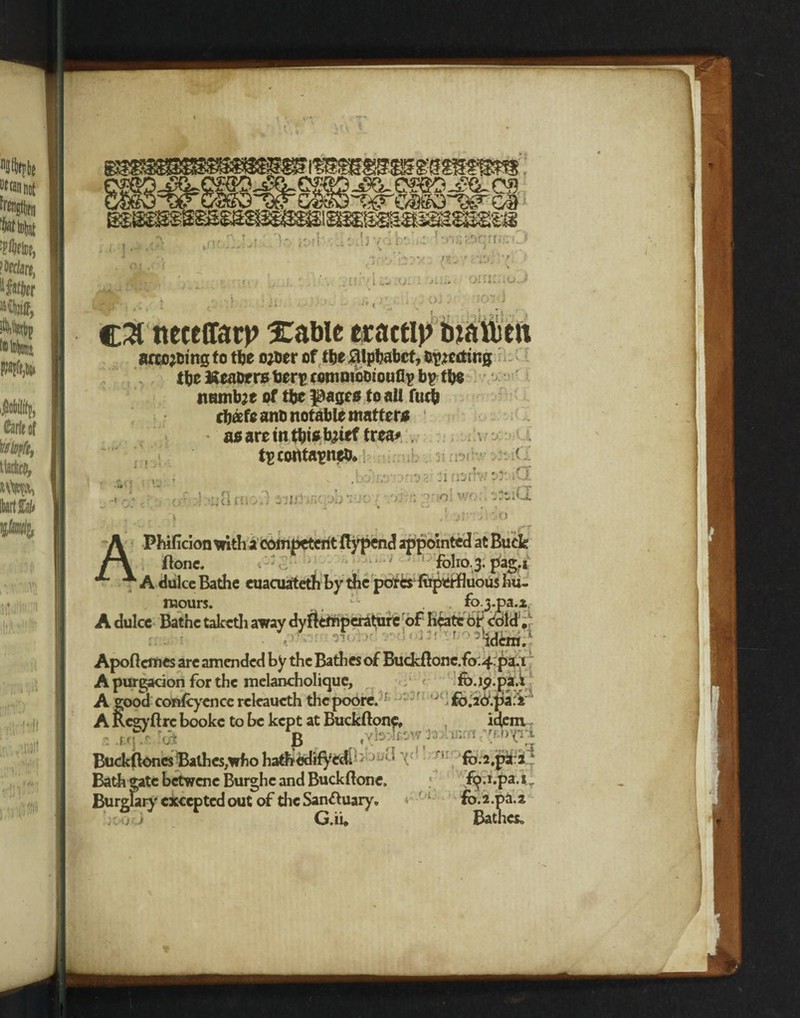 ng they be
we can not
strengthen
that what
declare,
father
Christ,
Nobility,
Earle of
¶A necessary Table exactly drawen
according to the order of the Alphabet, dyrecting
the Readers very commodiouslye by the
numbre of the Pages to all such
chéefe and notable matters
as are in this brief trea-
ty contayned.
A Phisicion with a competent stypend appointed at Buck
stone. folio.3. pag.1
A dulce Bathe euacuateth by the pores superfluous hu-
mours. fo.3.pa.2
A dulce Bathe taketh away dystemperature of heate or cold.
idem.
Apostemes are amended by the Bathes of Buckstone.fo.4.pa.1
A purgacion for the melancholique, fo.19.pa.1
A good conscyence releaueth the poore. fo.20.pa.2
A Regystre booke to be kept at Buckstone, idem
B
Buckstones Bathes,who hath edifyed. fo.2.pa.2
Bath gate betwene Burghe and Buckstone. fo.1.pa.1.
Burglary excepted out of the Sanctuary. fo.2.pa.2
G.ii. Bathes.